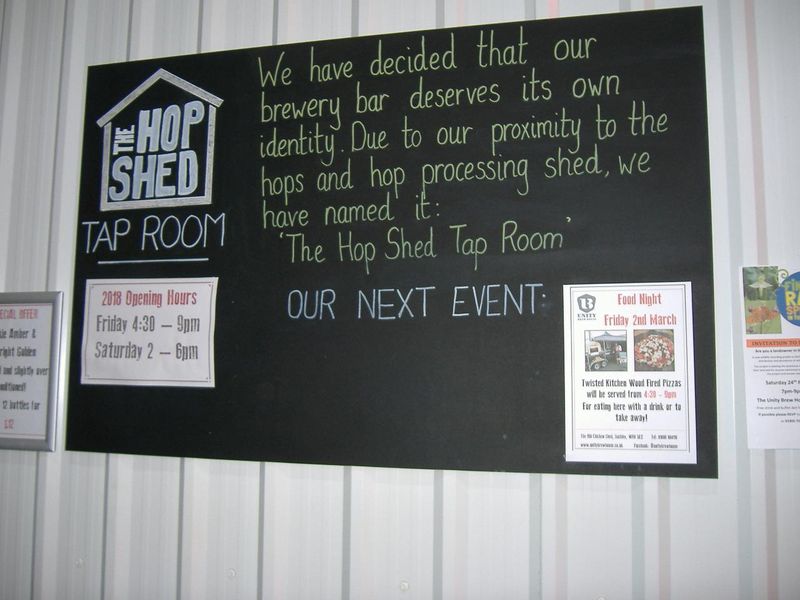 THE HOP
SHED
TAP ROOM
We have decided that our
brewery bar deserves its own
identity. Due to our proximity to the
hops and hop processing shed, we
have named it:
'The Hop Shed Tap Room'
2018 Opening Hours
Friday 4:30 – 9pm
Saturday 2 – 6pm
OUR NEXT EVENT:
UNITY
Food Night
Friday 2nd March
Twisted Kitchen Wood Fired Pizzas
will be served from 4:30 – 9pm
For eating here with a drink or to
take away!
SPECIAL OFFER
Amber &
right Golden
and slightly over
12 bottles for
£12
INVITATION TO
Are you a landowner in
Saturday 24th
7pm-9p
The Unity Brew Ho